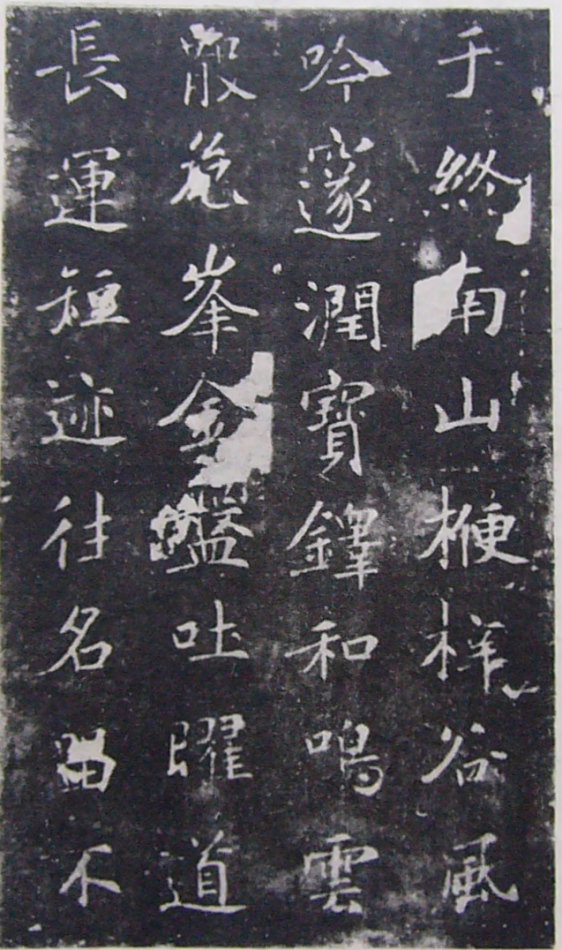 于終南山楩梓谷風
吟邃澗寶鐸和鳴雲
散危峯金盤吐曜道
長運短迹往名留不